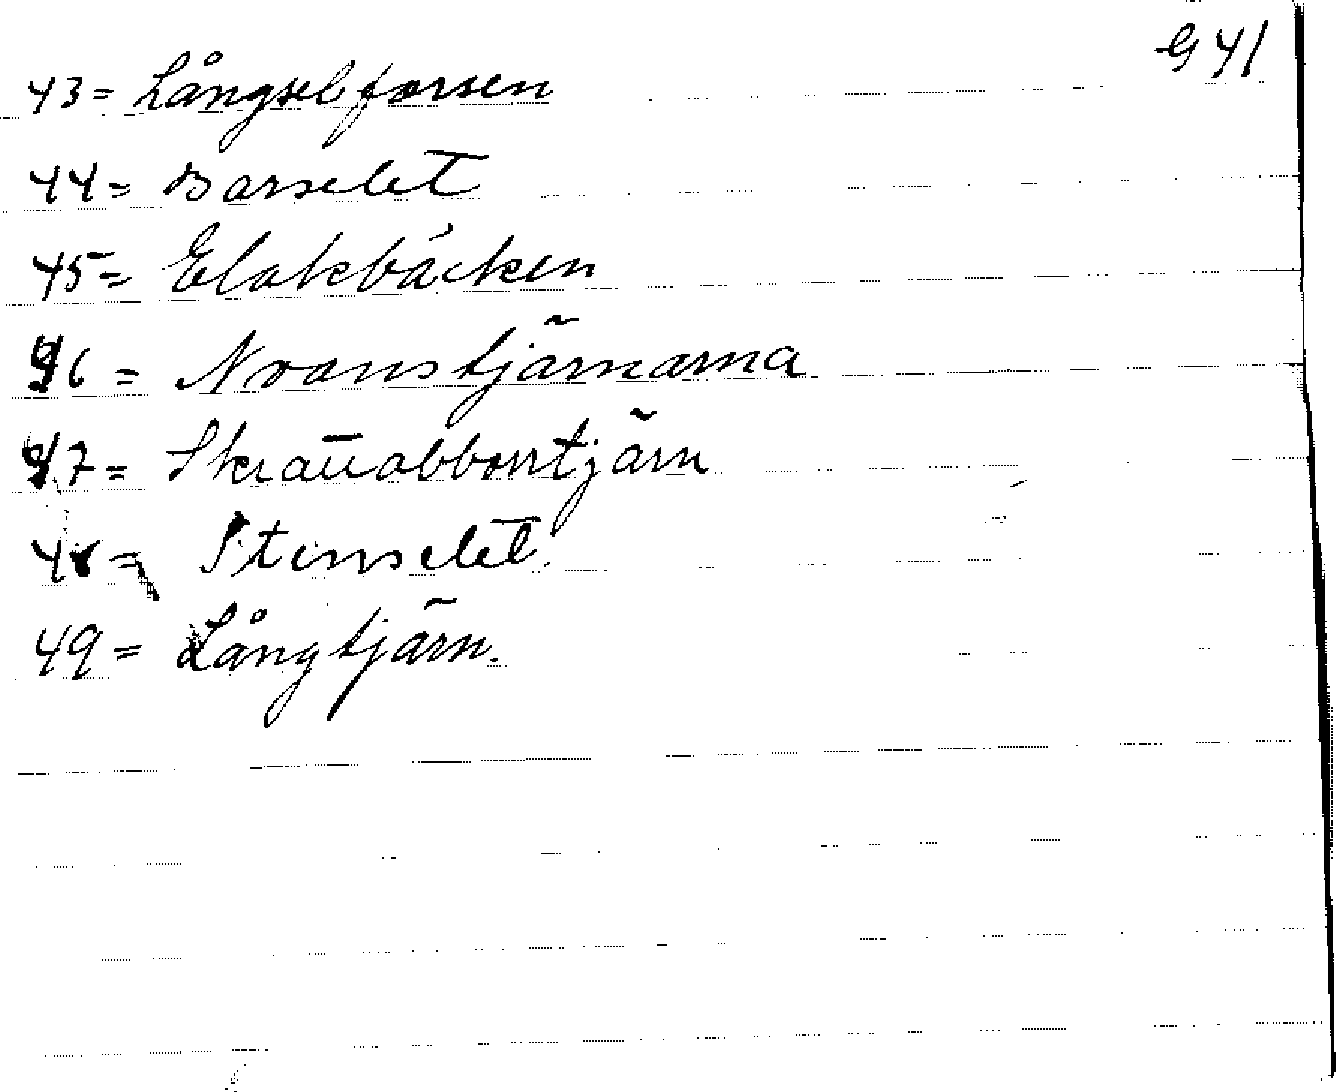 G 41
43 = Långselforsen
44 = Barselet
45 = Elakbäcken
46 = Nvanstjärnarna
47 = Skrauabborrtjärn
48 = Stenselet
49 = Långtjärn.